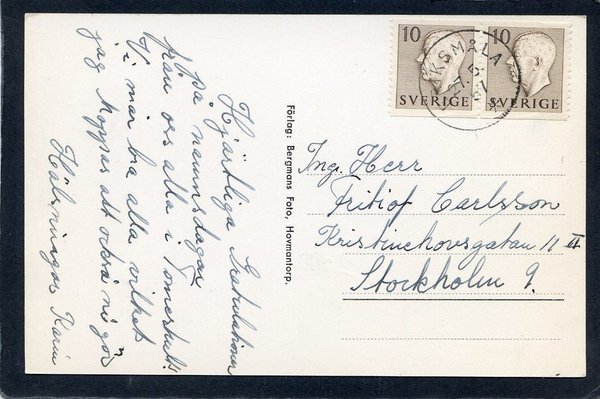 Hjärtliga Gratulationer
på namnsdagen
från oss alla i Tomeshult.
Vi mår bra alla vilket
jag hoppas att också ni gör
Hälsningar Karin
Förlag: Bergmans Foto, Hovmantorp.
10
SVERIGE
10
SVERIGE
Ing. Herr
Fritiof Carlsson
Kristinehovsgatan 11 II
Stockholm 9.